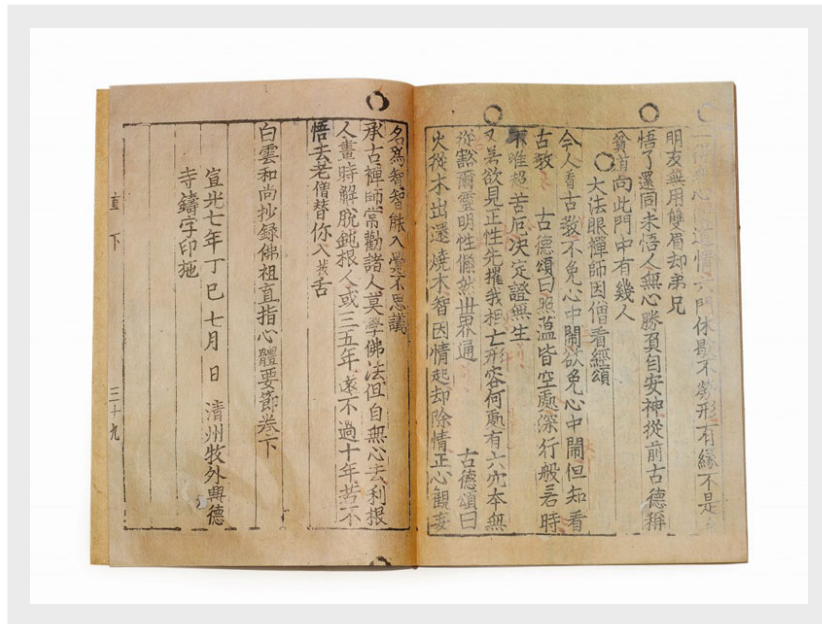 無心道情六門休歇不勞形有緣不是
朋友無用雙眉却弟兄
悟了還同未悟人無心勝負自安神從前古德稱
貧道向此門中有幾人
大法眼禪師因僧看經頌
今人看古教不免心中鬧欲免心中鬧但知看
古教 古德頌曰照蘊皆空處深行般若時
不唯超苦厄決定證無生
又若欲見正性先摧我相亡形容何處有六穴本無
從豁爾靈明性翛然世界通 古德頌曰
火從木出還燒木智因情起却除情正心觀妄
名爲智能入覺不思議
承古禪師常勸諸人莫學佛法但自無心去利根
人晝時解脫鈍根人或三五年遠不過十年若不
悟去老僧替你入舌
白雲和尚抄錄佛祖直指心體要節卷下
宣光七年丁巳七月 日 清州牧外興德
寺鑄字印施
直下 三十九